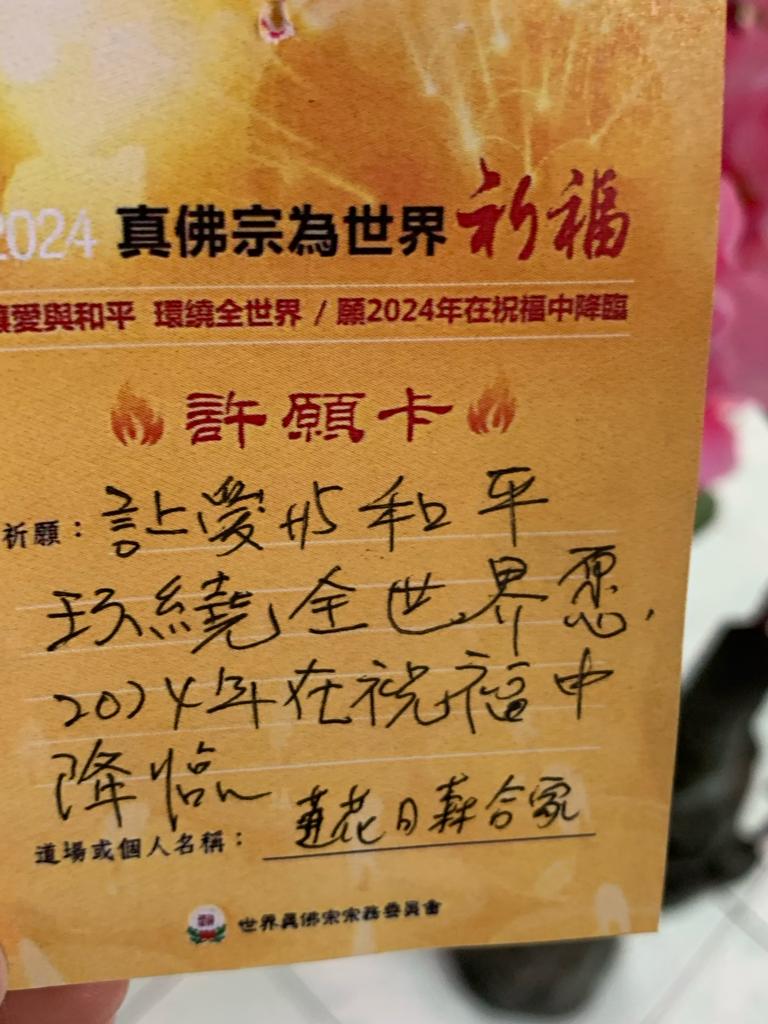 2024 真佛宗為世界祈福
讓愛與和平 環繞全世界 / 願2024年在祝福中降臨
許願卡
祈願：让愛与和平
环繞全世界愿，
2024年在祝福中
降临
道場或個人名稱：蓮花日森合家
世界真佛宗宗務委員會